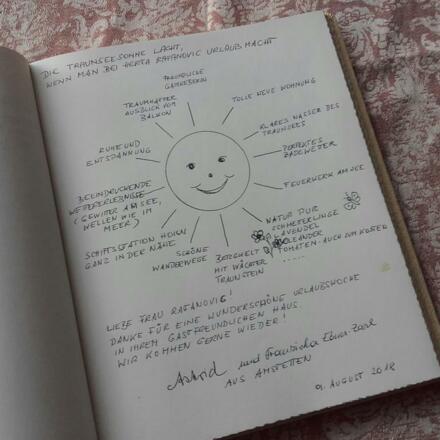 DIE TRAUNSEESONNE LACHT,
WENN MAN BEI HERTA RAFANOVIC URLAUB MACHT
FREUNDLICHE
GASTGEBERIN
TOLLE NEUE WOHNUNG
KLARES WASSER DES
TRAUNSEES
PERFEKTES
BADEWETTER
FEUERWERK AM SEE
NATUR PUR
SCHMETTERLINGE
LAVENDEL
OLEANDER
TOMATEN - AUCH ZUM KOSTEN
......
BERGWELT
MIT WÄCHTER
TRAUNSTEIN
SCHÖNE
WANDERWEGE
SCHIFFSSTATION HOISN
GANZ IN DER NÄHE
BEEINDRUCKENDE
WETTERERLEBNISSE
(GEWITTER AM SEE,
WELLEN WIE IM
MEER)
RUHE UND
ENTSPANNUNG
TRAUMHAFTER
AUSBLICK VOM
BALKON
LIEBE FRAU RAFANOVIC!
DANKE FÜR EINE WUNDERSCHÖNE URLAUBSWOCHE
IN IHREM GASTFREUNDLICHEN HAUS.
WIR KOMMEN GERNE WIEDER!
Astrid und Franziska
AUS AMSTETTEN
9. AUGUST 2018